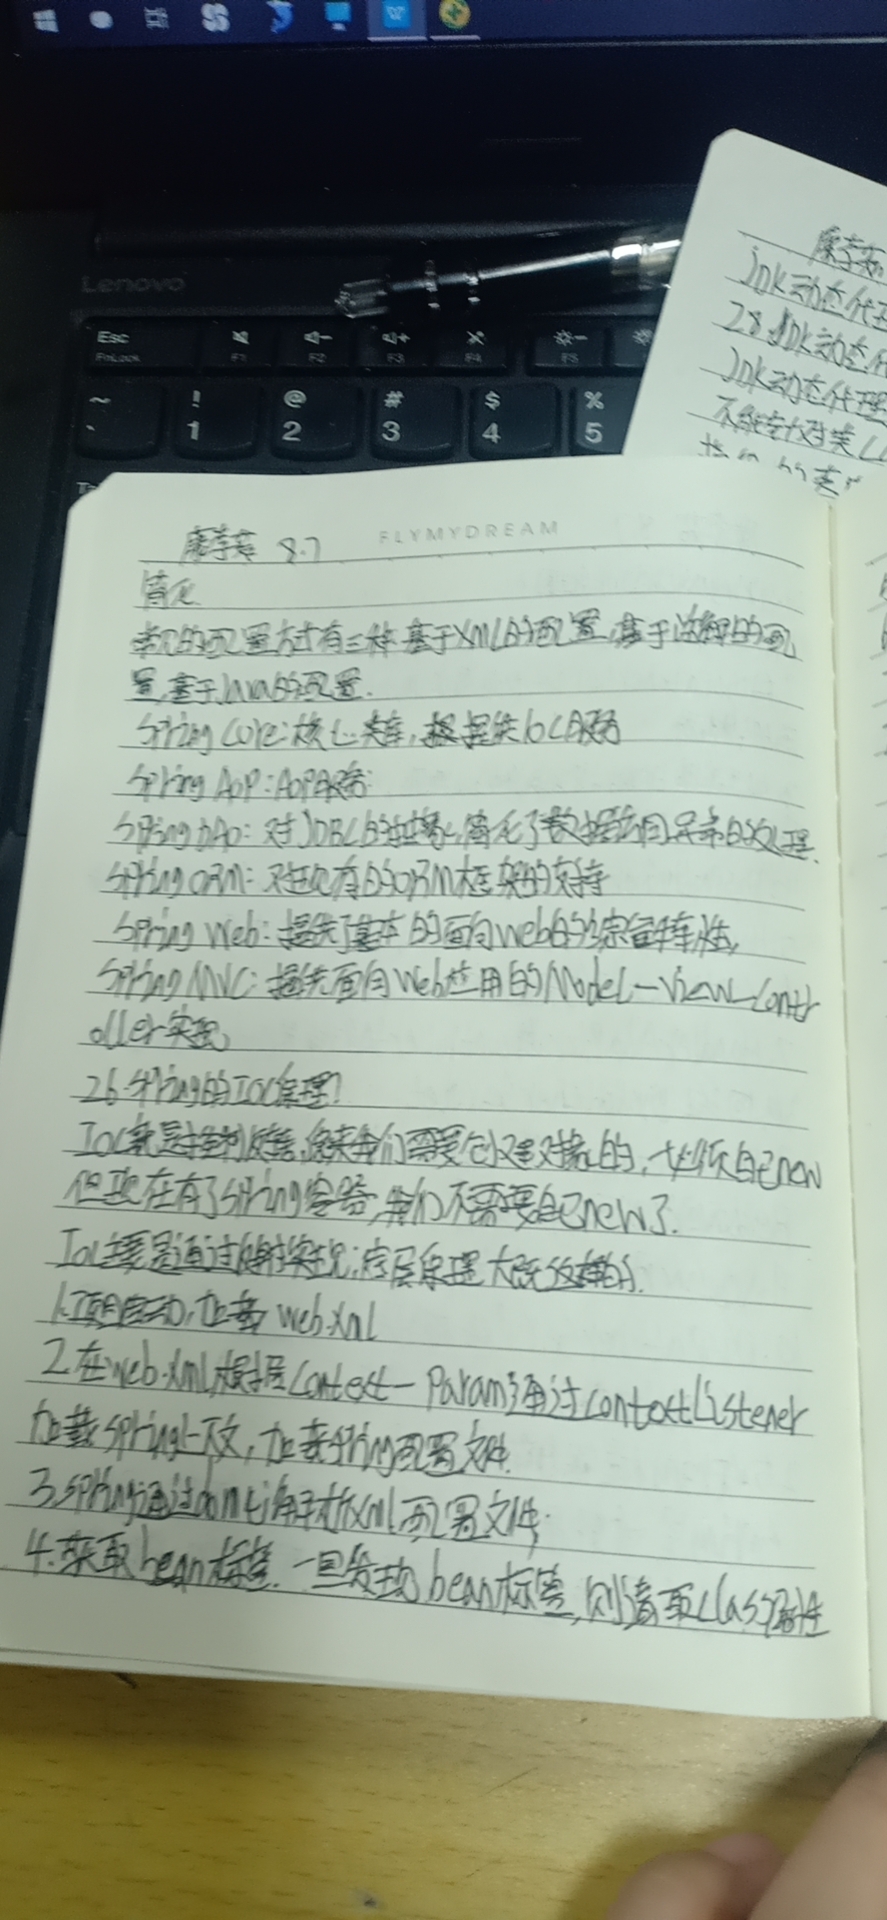 Lenovo
Esc
FnLock
F1
F2
F3
F4
F5
~
` ! 1 @ 2 # 3 $ 4 % 5
JDK动态代理
28 JDK动态代
JDK动态代理
不能针对类
FLYMYDREAM
8.7
简化
常见的配置方式有三种 基于XML的配置,基于注解的配
置,基于Java的配置.
Spring Core:核心类库,提供IOC服务
Spring AOP:AOP服务:
Spring DAO:对JDBC的抽象,简化了数据访问异常的处理.
Spring ORM:对现有的ORM框架的支持
Spring Web:提供了基本的面向Web的综合特性,
Spring MVC:提供面向Web应用的Model-View-Contr
oller实现
26.Spring的IOC原理?
IOC就是控制反转,原来我们需要创建对象的,必须自己new
但现在有了Spring容器,我们不需要自己new了.
IOC主要是通过反射实现:底层原理大概这样的.
1.项目启动,加载web.xml
2.在web.xml根据Context-Param通过ContextListener
加载Spring上下文,加载Spring配置文件.
3.Spring通过dom4j解析xml配置文件;
4.获取bean标签.一旦发现bean标签,则读取class属性